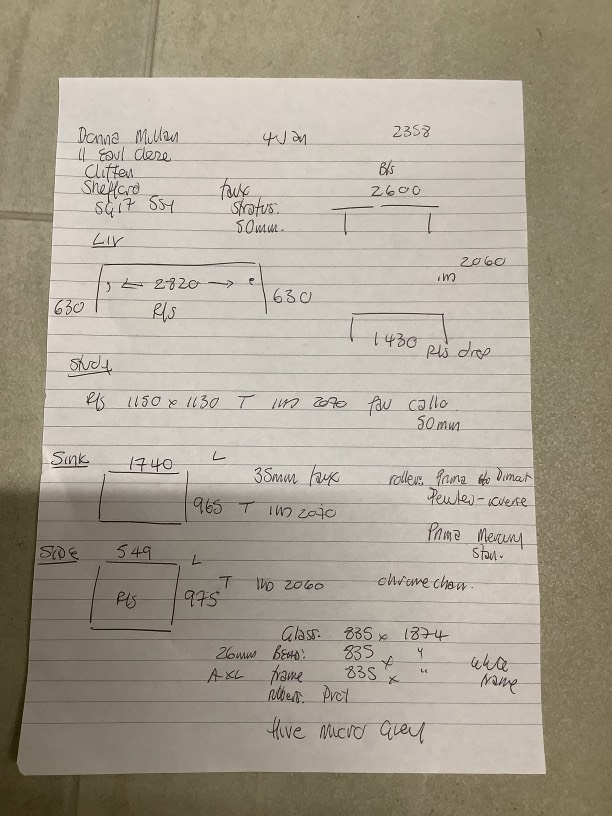 Donna Mullan 4 Jan 2358
11 Earl Close
Clifton B/s
Shefford faux 2600
SG17 5SY stratus.
50mm.
LIV
2060
630 2820 630 im
R/s
1430
R/s drop
Study
R/s 1150 x 1130 T IM 2070 fau
50mm
Sink 1740 L
35mm faux rollers Prima
965 T IM 2070 Pewter
Prima Mercury
SIDE 549 L Stan.
R/s 975 T IM 2060 chrome chain.
Glass: 835 x 1874
26mm BEAD: 835 x " white
AXL frame 835 x " frame
rollers.
Hive Micro Grey